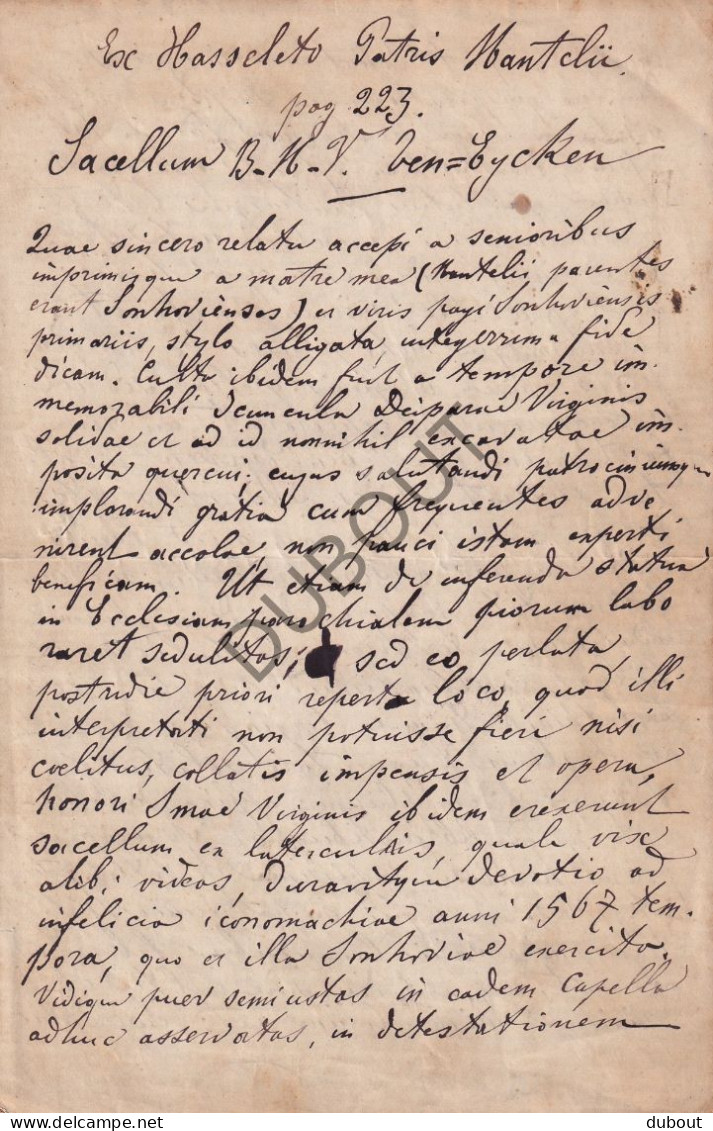 Ex Hasseleto Patris Mantelii.
pag 223.
Sacellum B-M-V. ten=Eycken
Quae sincero relatu accepi a senioribus
imprimisque a matre mea (Mantelii parentes
erant Sonhovienses) et viris pagi Sonhoviensis
primariis, stylo alligata, integerrima fide
dicam. Culta ibidem fuit a tempore im-
memorabili Icuncula Deiparae Virginis
solidae et ad id nonnihil excavatae im-
posita quercui; cujus salutandi patrociniumque
implorandi gratia cum frequentes adve
nirent accolae, non pauci istam experti
beneficam. Ut etiam de inferenda statua
in Ecclesiam parochialem piorum labo
raret sedulitas; sed eo perlata,
postridie priori reperta loco, quod illi
interpretati non potuisse fieri nisi
coelitus, collatis impensis et opera,
honori Smae Virginis ibidem erexerunt
sacellum ex laterculis, quale vix
alibi videas, duravitque devotio ad
infelicia iconomachiae anni 1567 tem-
pora, quo et illa Sonhoviae exercita.
Vidique puer semiustas in eadem Capella
adhuc asservatas, in detestationem
DUBOUT
delcampe.net
dubout